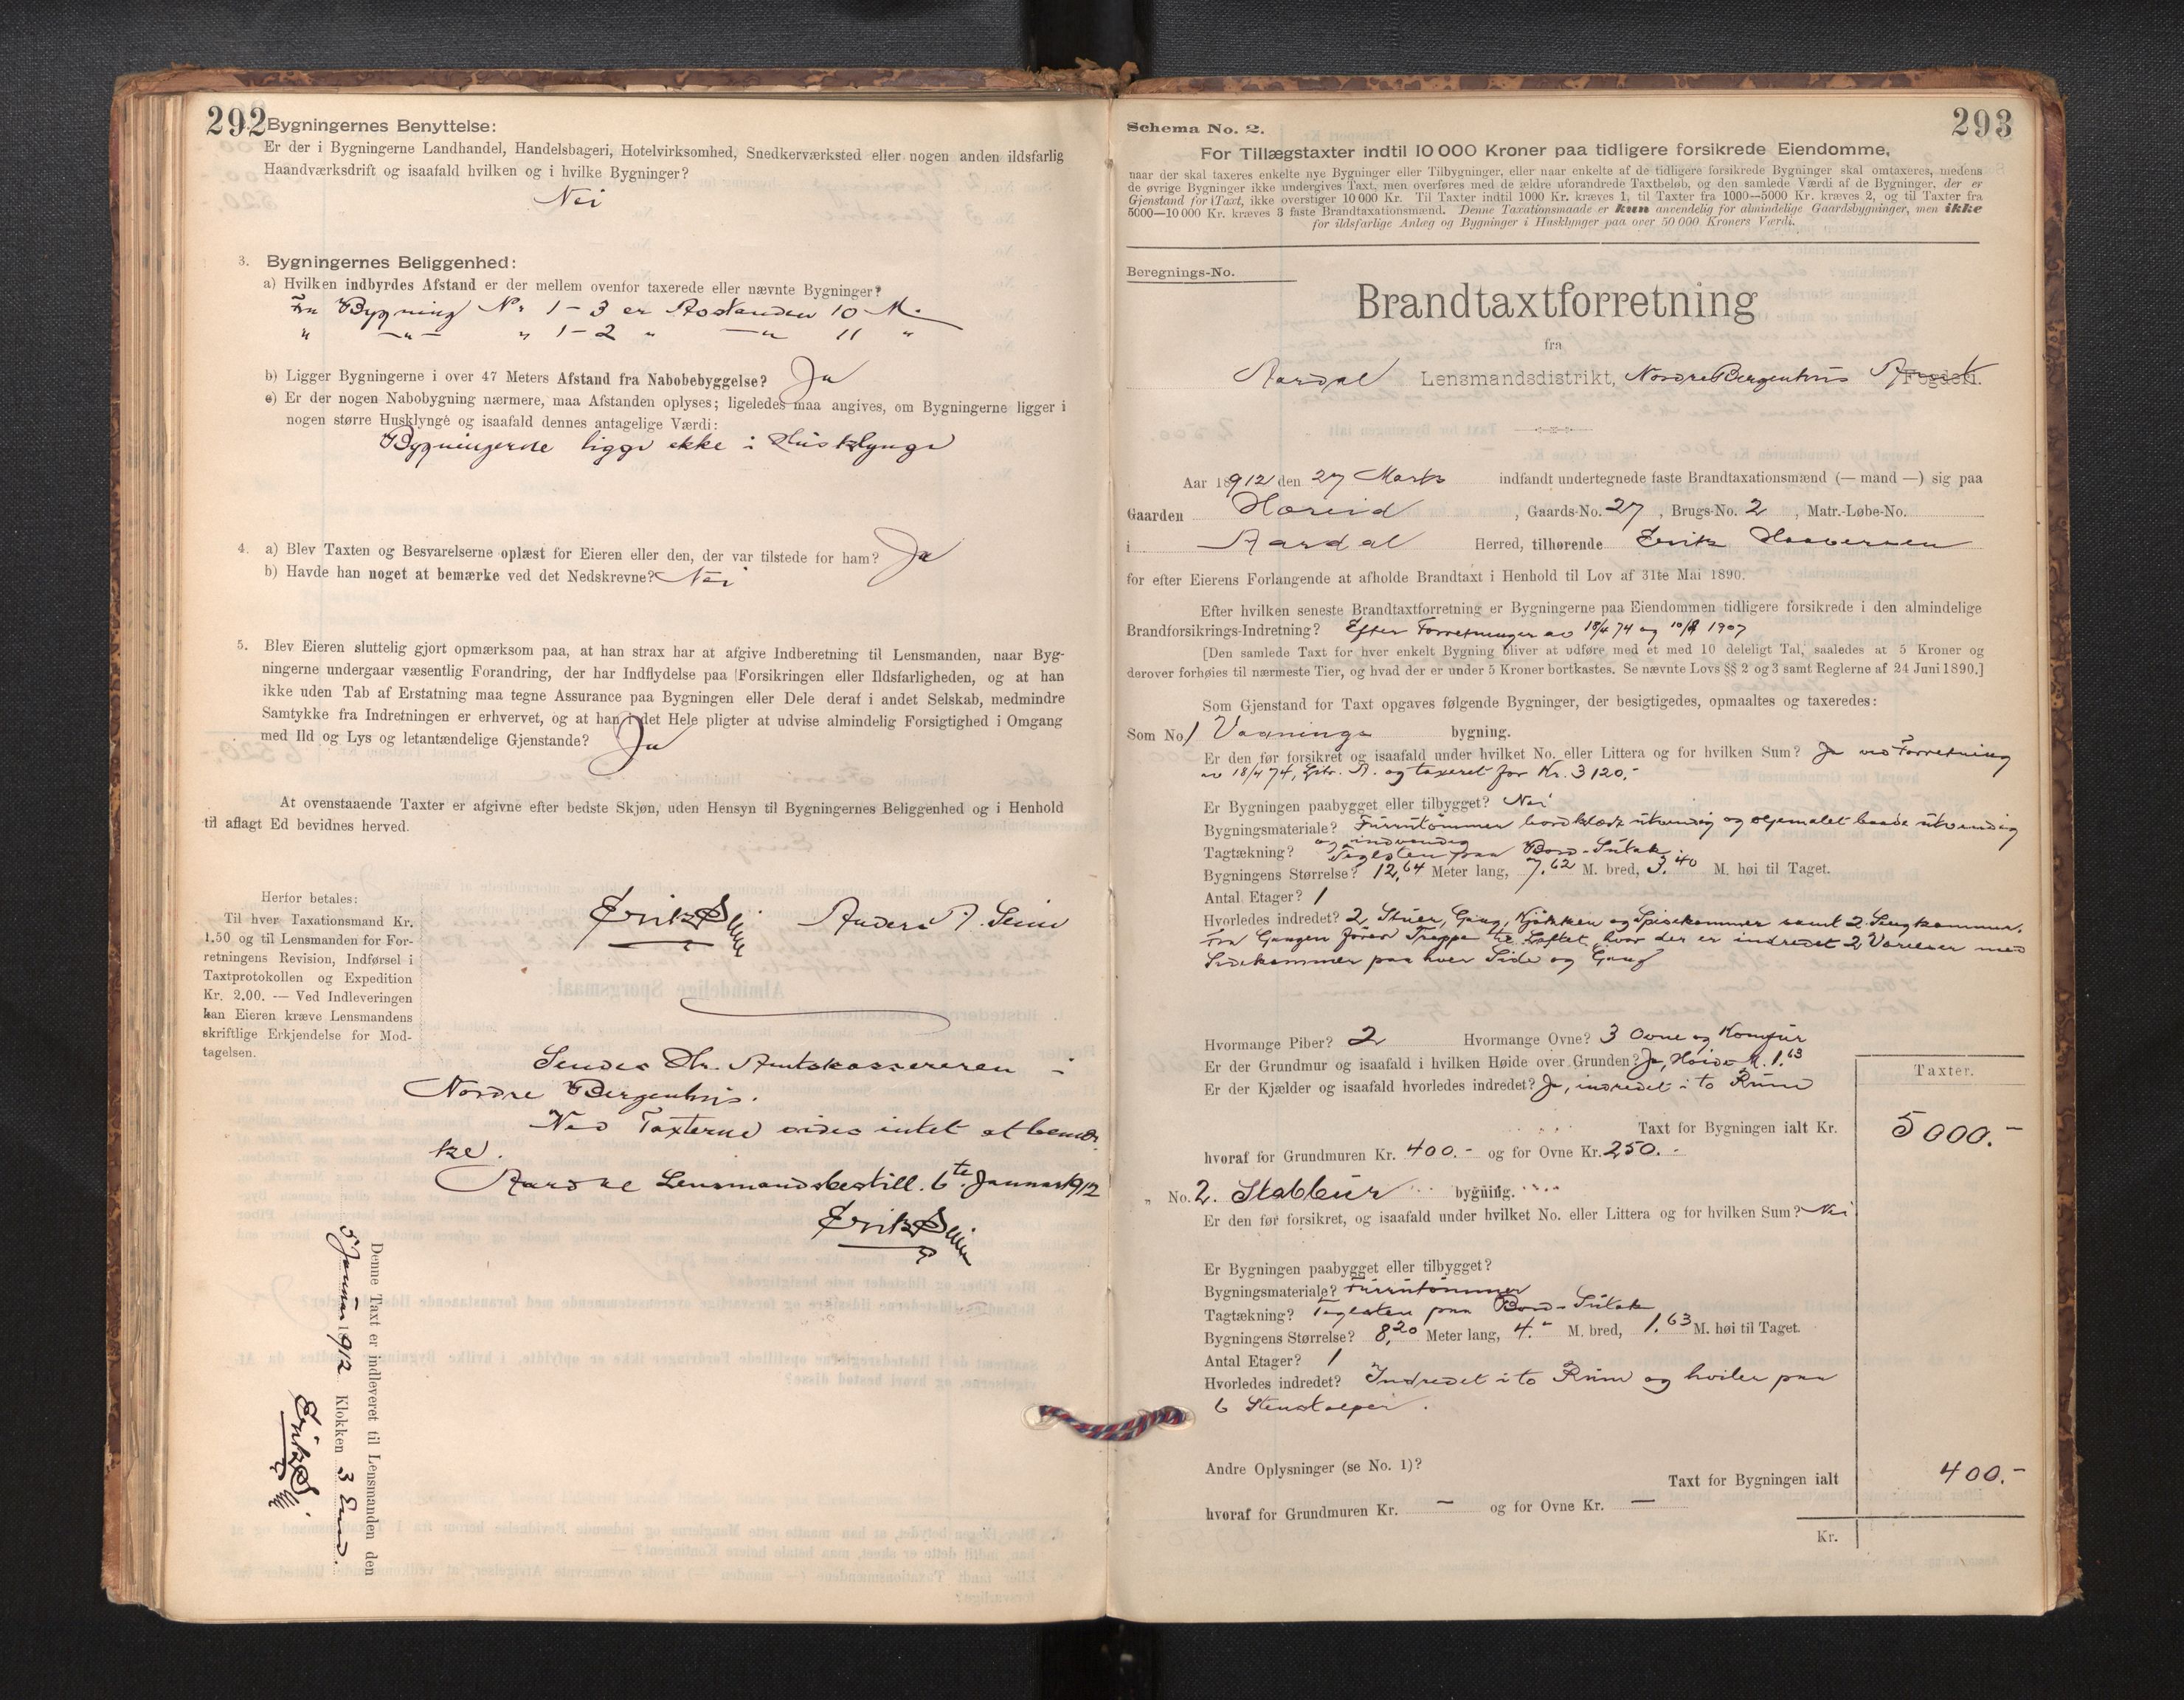 292
Bygningernes Benyttelse:
Er der i Bygningerne Landhandel, Handelsbageri, Hotelvirksomhed, Snedkerværksted eller nogen anden ildsfarlig
Haandværksdrift og isaafald hvilken og i hvilke Bygninger?
Nei
3. Bygningernes Beliggenhed:
a) Hvilken indbyrdes Afstand er der mellem ovenfor taxerede eller nævnte Bygninger?
Fra Bygning Nr 1-3 er Avstanden 10 M.
" —"— " 1-2 " —"— 11 "
b) Ligger Bygningerne i over 47 Meters Afstand fra Nabobebyggelse? Ja
c) Er der nogen Nabobygning nærmere, maa Afstanden oplyses; ligeledes maa angives, om Bygningerne ligger i
nogen større Husklynge og isaafald dennes antagelige Værdi:
Bygningerne ligge ikke i Husklynge
4. a) Blev Taxten og Besvarelserne oplæst for Eieren eller den, der var tilstede for ham? Ja
b) Havde han noget at bemærke ved det Nedskrevne? Nei
5. Blev Eieren sluttelig gjort opmærksom paa, at han strax har at afgive Indberetning til Lensmanden, naar Byg-
ningerne undergaar væsentlig Forandring, der har Indflydelse paa Forsikringen eller Ildsfarligheden, og at han
ikke uden Tab af Erstatning maa tegne Assurance paa Bygningen eller Dele deraf i andet Selskab, medmindre
Samtykke fra Indretningen er erhvervet, og at han i det Hele pligter at udvise almindelig Forsigtighed i Omgang
med Ild og Lys og letantændelige Gjenstande? Ja
At ovenstaaende Taxter er afgivne efter bedste Skjøn, uden Hensyn til Bygningernes Beliggenhed og i Henhold
til aflagt Ed bevidnes herved.
Herfor betales:
Til hver Taxationsmand Kr.
1.50 og til Lensmanden for For-
retningens Revision, Indførsel i
Taxtprotokollen og Expedition
Kr. 2.00. — Ved Indleveringen
kan Eieren kræve Lensmandens
skriftlige Erkjendelse for Mod-
tagelsen.
Anders A. Seim
Sendes Hr. Amtskassereren i
Nordre Bergenhus.
Ved Taxterne vides intet at bemær-
ke.
Aardal Lensmandsbestill. 6te Januar 1912
Denne Taxt er indleveret til Lensmanden den
5 Januar 1912 Klokken 3 Em.
293
Schema No. 2.
For Tillægstaxter indtil 10 000 Kroner paa tidligere forsikrede Eiendomme,
naar der skal taxeres enkelte nye Bygninger eller Tilbygninger, eller naar enkelte af de tidligere forsikrede Bygninger skal omtaxeres, medens
de øvrige Bygninger ikke undergives Taxt, men overføres med de ældre uforandrede Taxtbeløb, og den samlede Værdi af de Bygninger, der er
Gjenstand for Taxt, ikke overstiger 10 000 Kr. Til Taxter indtil 1000 Kr. kræves 1, til Taxter fra 1000—5000 Kr. kræves 2, og til Taxter fra
5000—10 000 Kr. kræves 3 faste Brandtaxationsmænd. Denne Taxationsmaade er kun anvendelig for almindelige Gaardsbygninger, men ikke
for ildsfarlige Anlæg og Bygninger i Husklynger paa over 50 000 Kroners Værdi.
Beregnings-No.
Brandtaxtforretning
fra
Aardal Lensmandsdistrikt, Nordre Bergenhus Amt Fogderi.
Aar 1912 den 27 Marts indfandt undertegnede faste Brandtaxationsmænd (— mand —) sig paa
Gaarden Horeid , Gaards-No. 27 , Brugs-No. 2 , Matr.-Løbe-No.
i Aardal Herred, tilhørende Erik Haaversen
for efter Eierens Forlangende at afholde Brandtaxt i Henhold til Lov af 31te Mai 1890.
Efter hvilken seneste Brandtaxtforretning er Bygningerne paa Eiendommen tidligere forsikrede i den almindelige
Brandforsikrings-Indretning? Efter Forretninger av 18/4 74 og 10/8 1907
[Den samlede Taxt for hver enkelt Bygning bliver at udføre med et med 10 deleligt Tal, saaledes at 5 Kroner og
derover forhøies til nærmeste Tier, og hvad der er under 5 Kroner bortkastes. Se nævnte Lovs §§ 2 og 3 samt Reglerne af 24 Juni 1890.]
Som Gjenstand for Taxt opgaves følgende Bygninger, der besigtigedes, opmaaltes og taxeredes:
Som No. 1 Vaanings bygning.
Er den før forsikret og isaafald under hvilket No. eller Littera og for hvilken Sum? Ja ved Forretning
av 18/4 74, Litr. A. og taxeret for Kr. 3120.-
Er Bygningen paabygget eller tilbygget? Nei
Bygningsmateriale? Furutømmer bordklædt utvendig og oljemalet baade utvendig
og indvendig
Tagtækning? Teglsten paa Bord-Sutak.
Bygningens Størrelse? 12,64 Meter lang, 7,62 M. bred, 3.40 M. høi til Taget.
Antal Etager? 1
Hvorledes indredet? 2 Stuer, Gang, Kjøkken og Spisekammer samt 2 Sengkammer.
Fra Gangen fører Trappe til Loftet, hvor der er indredet 2 Værelser med
Sidekammer paa hver Side og Gang
Hvormange Piber? 2 Hvormange Ovne? 3 Ovne og Komfur
Er der Grundmur og isaafald i hvilken Høide over Grunden? Ja, Høide M. 1.63
Er der Kjælder og isaafald hvorledes indredet? Ja, indredet i to Rum
Taxter.
Taxt for Bygningen ialt Kr. 5000.-
hvoraf for Grundmuren Kr. 400.- og for Ovne Kr. 250.-
" No. 2. Stabbur bygning.
Er den før forsikret, og isaafald under hvilket No. eller Littera og for hvilken Sum? Nei
Er Bygningen paabygget eller tilbygget?
Bygningsmateriale? Furutømmer
Tagtækning? Teglsten paa Bord-Sutak
Bygningens Størrelse? 8,20 Meter lang, 4.- M. bred, 1.63 M. høi til Taget.
Antal Etager? 1
Hvorledes indredet? Indredet i to Rum og hviler paa
6 Stenstolper.
Andre Oplysninger (se No. 1)?
Taxt for Bygningen ialt 400.-
hvoraf for Grundmuren Kr. — og for Ovne Kr. —
Kr.